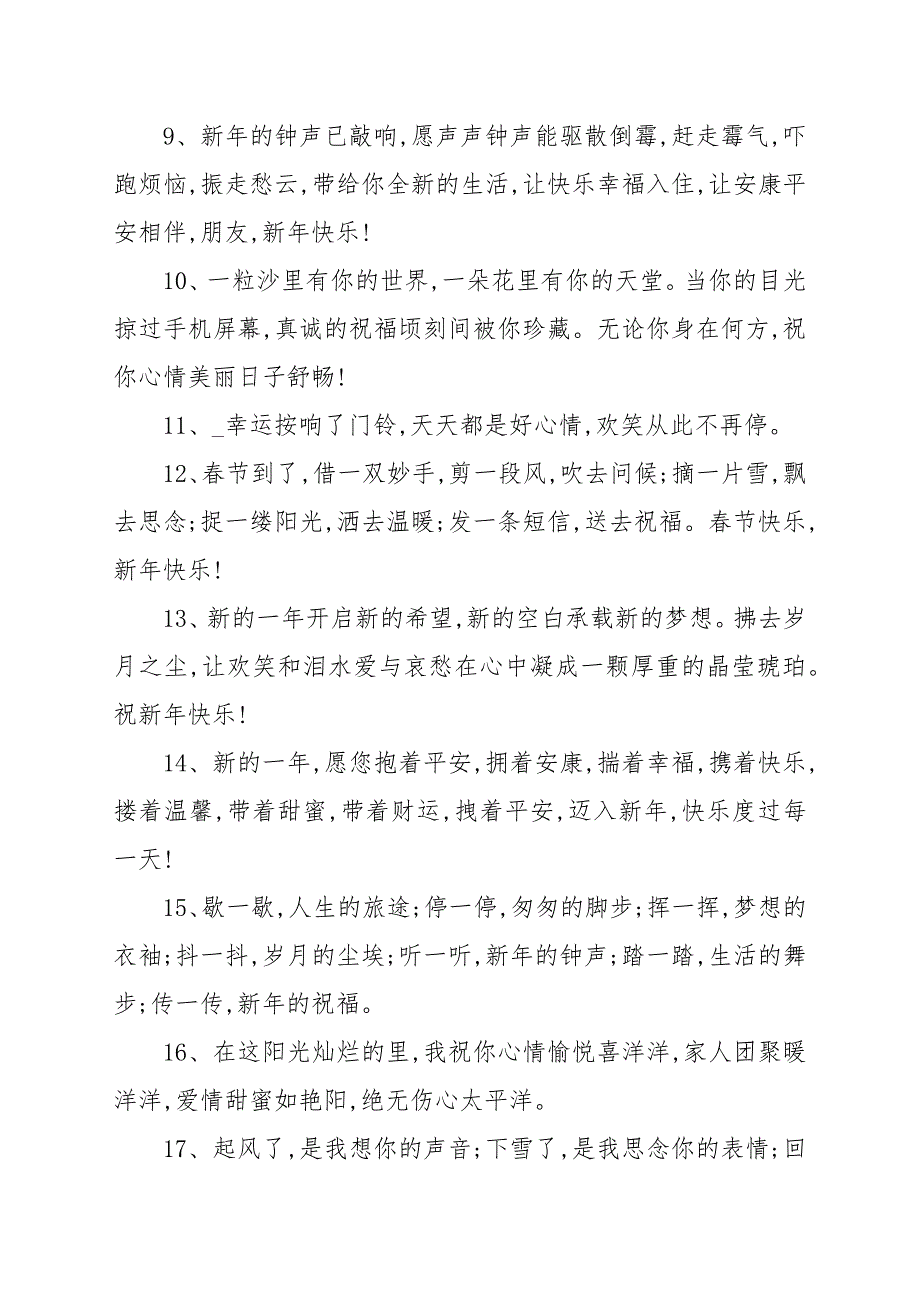 9、新年的钟声已敲响,愿声声钟声能驱散倒霉,赶走霉气,吓
跑烦恼,振走愁云,带给你全新的生活,让快乐幸福入住,让安康平
安相伴,朋友,新年快乐!
10、一粒沙里有你的世界,一朵花里有你的天堂。当你的目光
掠过手机屏幕,真诚的祝福顷刻间被你珍藏。无论你身在何方,祝
你心情美丽日子舒畅!
11、_幸运按响了门铃,天天都是好心情,欢笑从此不再停。
12、春节到了,借一双妙手,剪一段风,吹去问候;摘一片雪,飘
去思念;捉一缕阳光,洒去温暖;发一条短信,送去祝福。春节快乐,
新年快乐!
13、新的一年开启新的希望,新的空白承载新的梦想。拂去岁
月之尘,让欢笑和泪水爱与哀愁在心中凝成一颗厚重的晶莹琥珀。
祝新年快乐!
14、新的一年,愿您抱着平安,拥着安康,揣着幸福,携着快乐,
搂着温馨,带着甜蜜,带着财运,拽着平安,迈入新年,快乐度过每
一天!
15、歇一歇,人生的旅途;停一停,匆匆的脚步;挥一挥,梦想的
衣袖;抖一抖,岁月的尘埃;听一听,新年的钟声;踏一踏,生活的舞
步;传一传,新年的祝福。
16、在这阳光灿烂的里,我祝你心情愉悦喜洋洋,家人团聚暖
洋洋,爱情甜蜜如艳阳,绝无伤心太平洋。
17、起风了,是我想你的声音;下雪了,是我思念你的表情;回